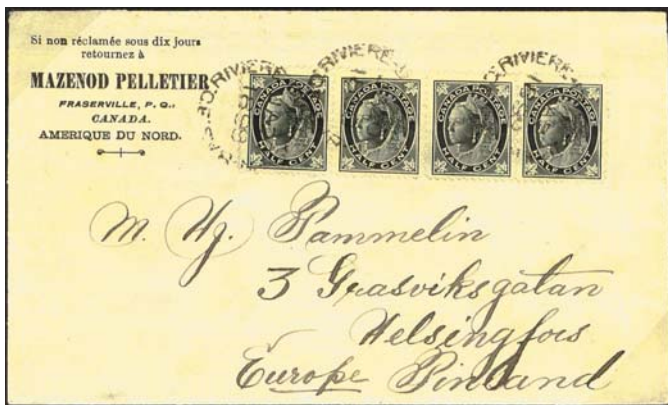 Si non réclamée sous dix jours
retournez à
MAZENOD PELLETIER
FRASERVILLE, P. Q.,
CANADA.
AMERIQUE DU NORD.
RIVIERE
RIVIERE
RIVIERE
CANADA POSTAGE
HALF CENT
CANADA POSTAGE
HALF CENT
CANADA POSTAGE
HALF CENT
CANADA POSTAGE
HALF CENT
M. Hj. Pammelin
3 Grasviksgatan
Helsingfors
Europe Finland